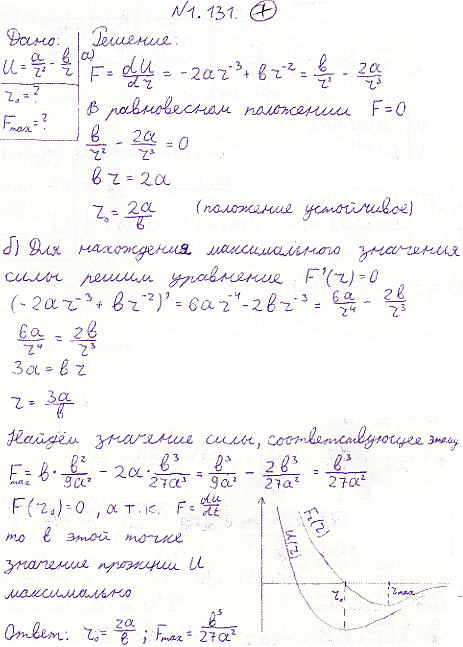 N 1.131. +
Дано: Решение:
U = a/r² - b/r
r₀ = ?
Fmax = ?
а) F = dU/dr = -2ar⁻³ + br⁻² = b/r² - 2a/r³
В равновесном положении F = 0
b/r² - 2a/r³ = 0
br = 2a
r₀ = 2a/b (положение устойчивое)
б) Для нахождения максимального значения
силы решим уравнение F'(r) = 0
(-2ar⁻³ + br⁻²)' = 6ar⁻⁴ - 2br⁻³ = 6a/r⁴ - 2b/r³
6a/r⁴ = 2b/r³
3a = br
r = 3a/b
Найдём значение силы, соответствующее этому
Fmax = b · b²/9a² - 2a · b³/27a³ = b³/9a² - 2b³/27a² = b³/27a²
F(r₀) = 0, а т.к. F = du/dt
то в этой точке
значение
U
максимально
Ответ: r₀ = 2a/b ; Fmax = b³/27a²
U(r)
Fr(r)
r₀
rmax
r